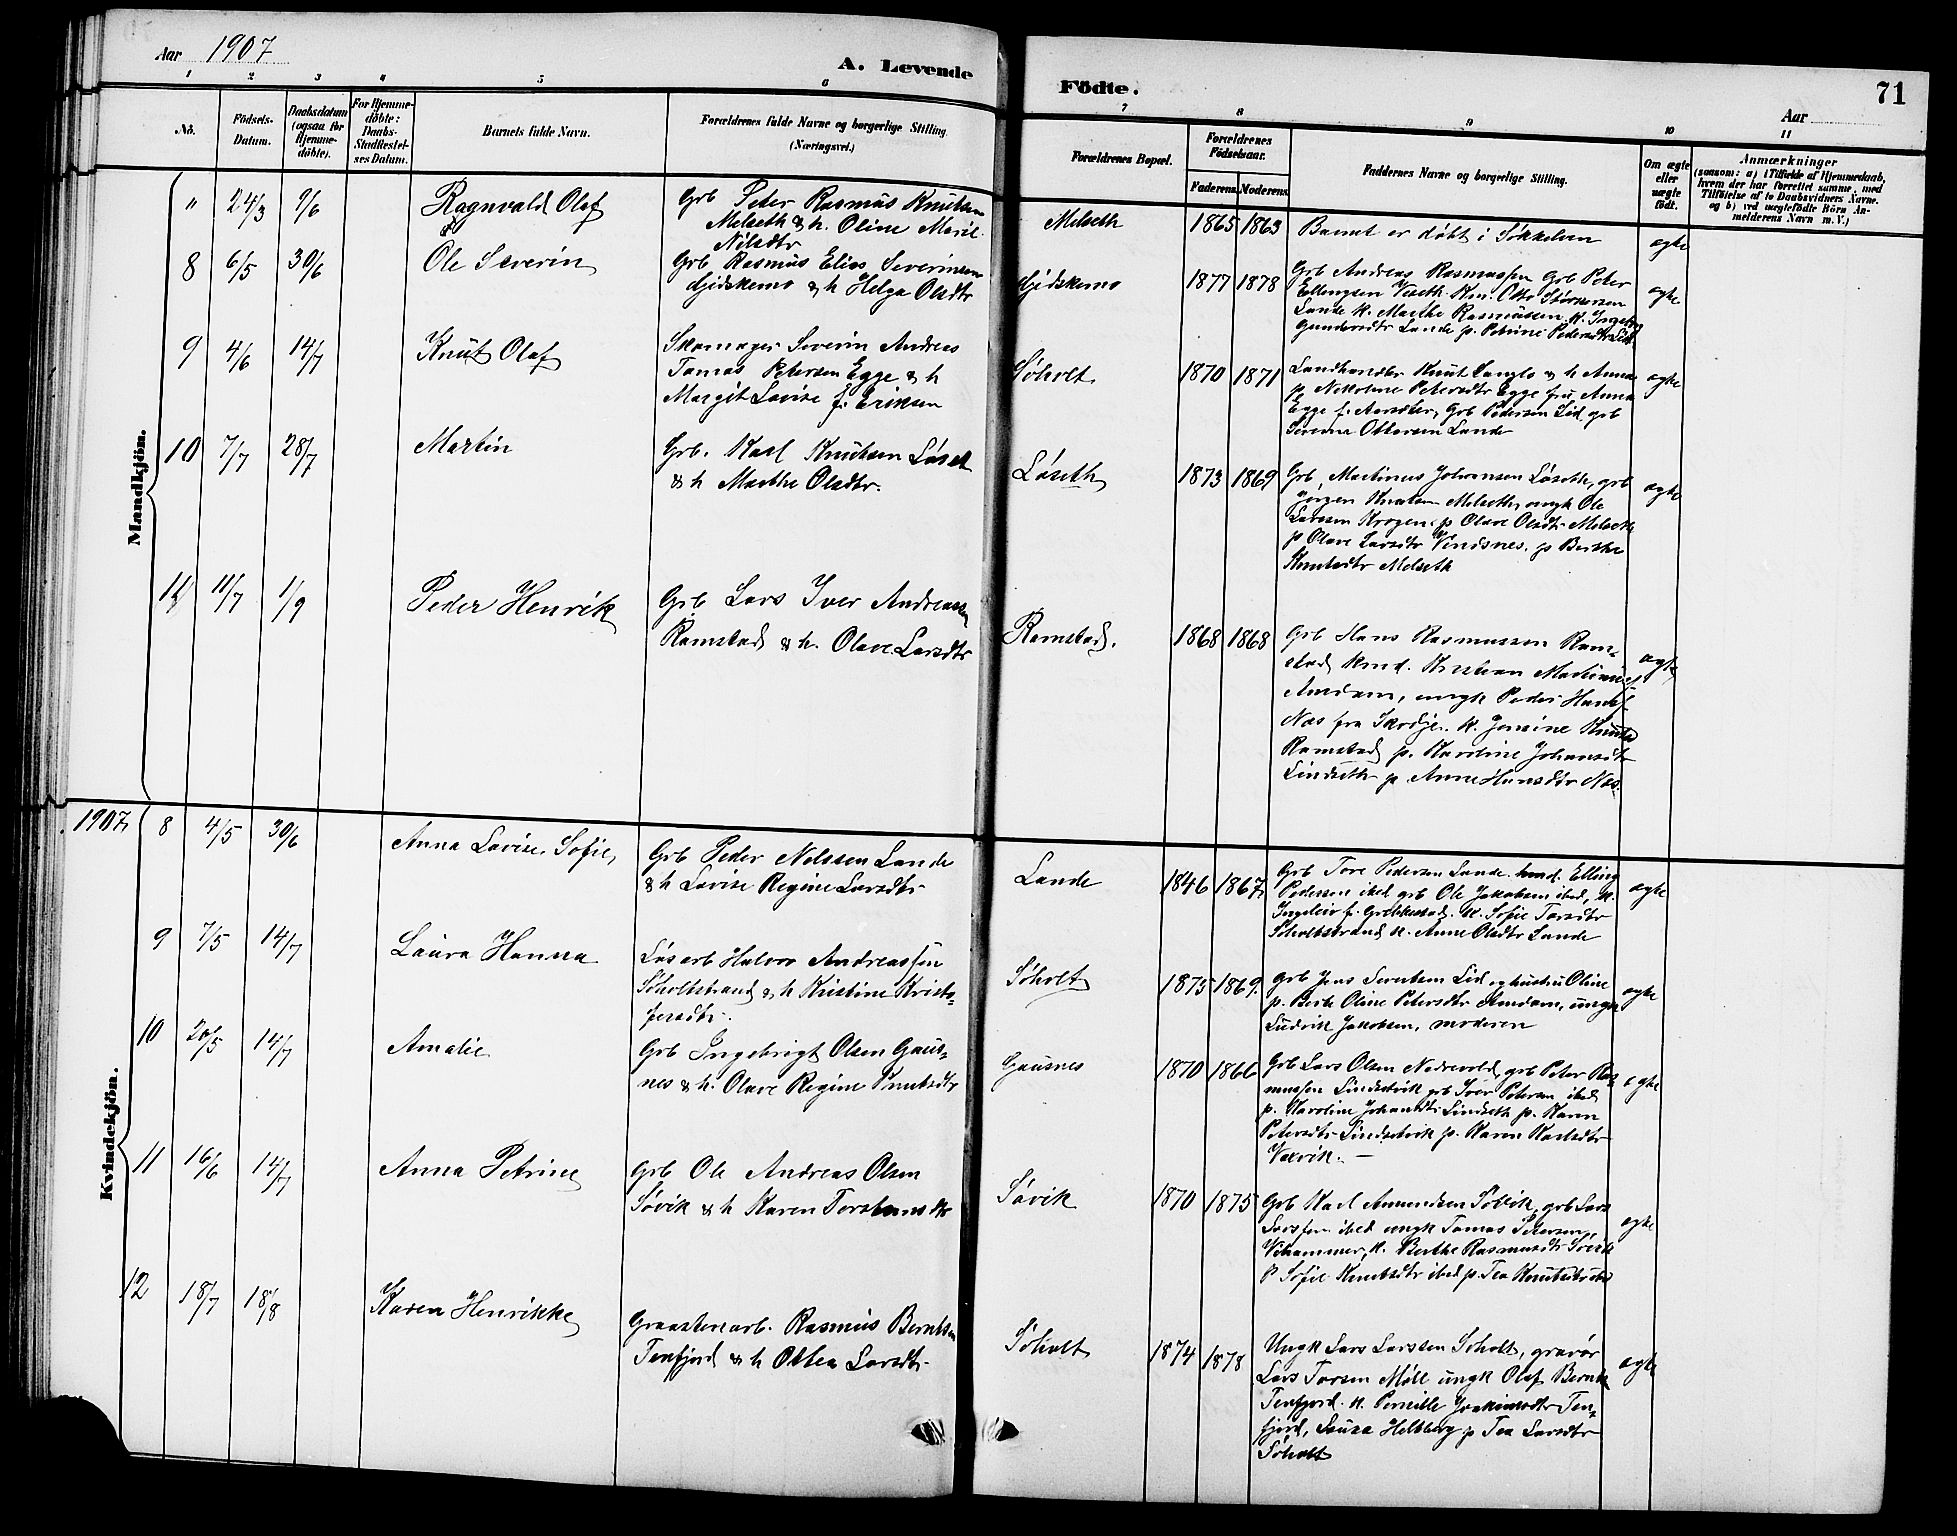 Aar 1907
A. Levende
Födte.
71
Aar
1 2 3 4 5 6
7 8 9 10 11
No.
Födsels-
Datum.
Daabsdatum
(ogsaa for
Hjemme-
döbte).
For Hjemme-
döbte:
Daabs-
Stadfæstel-
ses Datum.
Barnets fulde Navn.
Forældrenes fulde Navne og borgerlige Stilling
(Næringsvei.)
Forældrenes Bopæl.
Forældrenes
Födselsaar.
Faderens. Moderens.
Faddernes Navne og borgerlige Stilling.
Om ægte
eller
uægte
født.
Anmærkninger
(saasom: a) i Tilfælde af Hjemmedaab,
hvem der har forrettet samme, med
Tilföielse af to Daabsvidners Navne.
og b) ved uægtefödte Börn An-
melderens Navn m. V.)
Mandkjön.
" 24/3 9/6 Ragnvald Olaf
Grb Peter Rasmus Knutsen
Melseth & h. Oline Marie
Nilsdtr
Melseth 1865 1863
Barnet er døbt i Søkkelven
ægte
8 6/5 30/6 Ole Severin
Grb Rasmus Elias Severinsen
Gjidskemo & h Helga Olsdtr
Gjidskemo 1877 1878
Grb Andreas Rasmussen Grb Peter
Ellingsen Viseth
Lande k. Marthe Rasmussen k. Ingeborg
Gundersdtr Lande p. Petrine Pedersdtr Lid
ægte
9 4/6 14/7 Knut Olaf
Skomager Severin Andreas
Tomas Petersen Egge & h
Margit Lovise f. Eriksen
Søholt 1870 1871
Landhandler Knut Langlo & h Anna
p. Nikoline Petersdtr Egge fru Anna
Egge f. Grb Pedersen Lid grb
Ottersen Lande
ægte
10 7/7 28/7 Martin
Grb. Karl Knutsen Løset
& h Marthe Olsdtr.
Løseth 1873 1869
Grb, Martinus Johansen Løseth, grb
Jørgen Knutsen Melseth, ungk Ole
Larsen Krogen p Olave Olsdtr Melseth
p Olave Larsdtr Vindsnes, p Berthe
Knutsdtr Melseth
ægte
11 11/7 1/9 Peder Henrik
Grb Lars Iver Andreassen
Ramstad & h. Olave Larsdtr
Ramstad. 1868 1868
Grb Hans Rasmussen Ram-
stad kmd. Kristian Martinus
Amdam, ungk Peder Hans
Næs fra Skodje. k. Jensine Knuts
Ramstad p. Karoline Johansdtr
Lindseth p. Anne Hansdtr Næs.
ægte
Kvindekjön.
1907 8 4/5 30/6 Anna Lovise Sofie,
Grb Peder Nelssen Lande
& h Lovise Regine Larsdtr
Lande 1846 1867
Grb Tore Pedersen Lande kmd. Elling
Pedersen ibid grb Ole Jakobsen ibid, k.
Ingeleiv f. Grebbestad. k. Sofie Torsdtr
Søholtstrand k. Anne Olsdtr Lande
ægte
9 7/5 14/7 Laura Hanna
Løsarb Halvor Andreassen
Søholtstrand & h Kristine Kristo-
fersdtr.
Søholt 1875 1869.
Grb Jens Sevetsen Lid og hustru Oline
p. Berte Oline Petersdtr Amdam, ungk
Ludvik Jakobsen, moderen
ægte
10 20/5 14/7 Amalie
Grb Ingebrigt Olsen Gaus-
nes & h. Olave Regine Knutsdtr
Gausnes 1870 1866
Grb Lars Olsen Nedrevold, grb Peter Ras-
mussen Lindsetvik grb Iver Petersen ibid
p. Karoline Johansdtr Lindseth p. Karen
Petersdtr Lindsetvik p. Karen Karlsdtr
Vaxvik. —
ægte
11 16/6 14/7 Anna Petrine
Grb Ole Andreas Olsen
Søvik & h Karen Torstensdtr
Søvik 1870 1875
Grb Karl Amundsen Søvik, grb Lars
Larssen ibid ungk Tomas Petersen,
Vihammer, k. Berthe Rasmusdtr Søvik
p Sofie Knutsdtr ibid p. Tea Knutsdtr ibid
ægte
12 18/7 18/8 Karen Henrikke
Graastenarb. Rasmus Berntsen
Tenfjord & h Ottea Larsdtr
Søholt 1874 1878
Ungk Lars Larssen Søholt, gravør
Lars Torsen Møll ungk Olaf Bernts
Tenfjord. k. Pernille Joakimsdtr Ten-
fjord, Laura Heltberg p Tea Larsdtr
Søholt
ægte